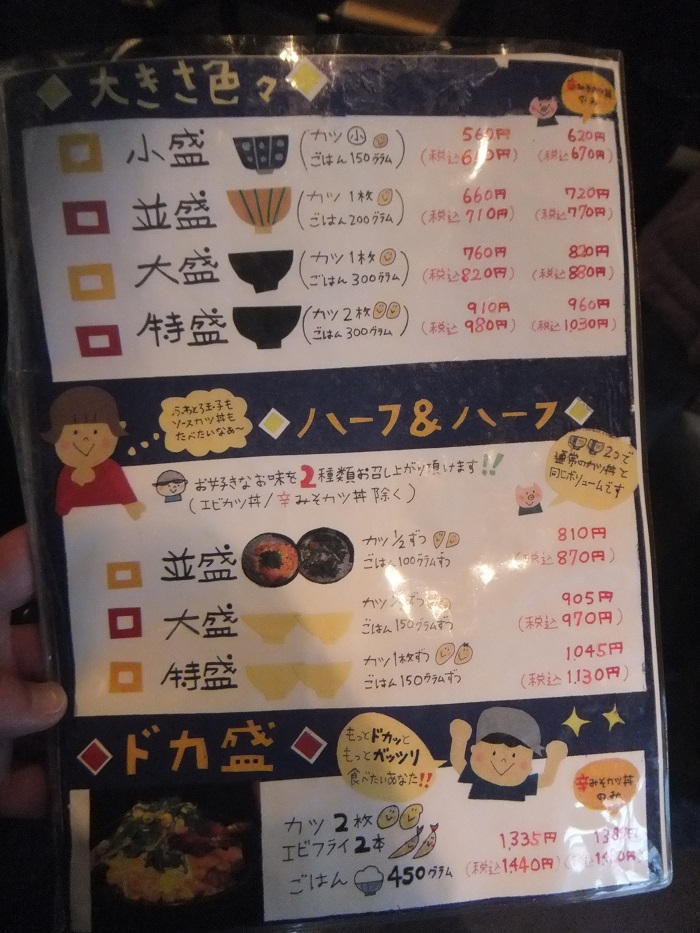 大きさ色々
辛みそカツ丼
のみ
小盛 (カツ小 560円 620円
ごはん150グラム) (税込 (税込670円)
並盛 (カツ1枚 660円 720円
ごはん200グラム) (税込710円) (税込770円)
大盛 (カツ1枚 760円 820円
ごはん300グラム) (税込820円) (税込880円)
特盛 (カツ2枚 910円 960円
ごはん300グラム) (税込980円) (税込1,030円)
ふわとろ玉子も
ソースカツ丼も
たべたいなぁ〜
ハーフ&ハーフ
2つで
通常のカツ丼と
同じボリュームです
お好きなお味を2種類お召し上がり頂けます!!
(エビカツ丼/辛みそカツ丼 除く)
並盛 カツ1/2ずつ 810円
ごはん100グラムずつ (税込870円)
大盛 カツ ずつ 905円
ごはん150グラムずつ (税込970円)
特盛 カツ1枚ずつ 1,045円
ごはん150グラムずつ (税込1,130円)
ドカ盛
もっとドカッと
もっとガッツリ
食べたいあなた!!
辛みそカツ丼
のみ
カツ2枚
エビフライ2本 1,335円
ごはん 450グラム (税込1,440円)